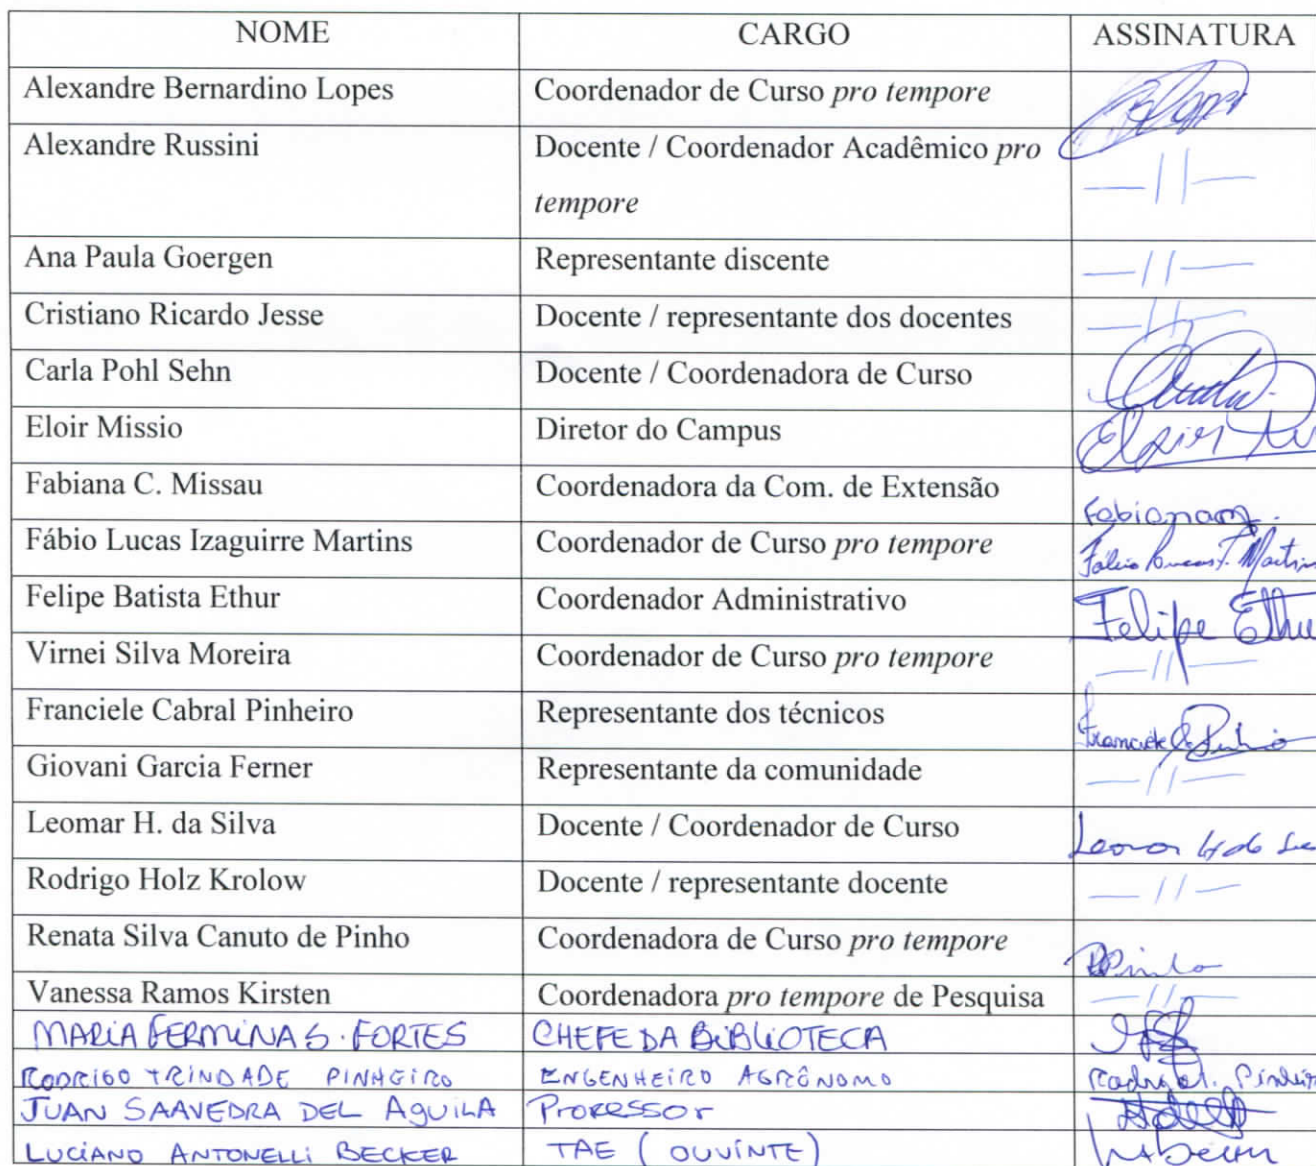 NOME CARGO ASSINATURA
Alexandre Bernardino Lopes Coordenador de Curso pro tempore
Alexandre Russini Docente / Coordenador Acadêmico pro
tempore —//—
Ana Paula Goergen Representante discente —//—
Cristiano Ricardo Jesse Docente / representante dos docentes —//—
Carla Pohl Sehn Docente / Coordenadora de Curso
Eloir Missio Diretor do Campus Eloir
Fabiana C. Missau Coordenadora da Com. de Extensão
Fábio Lucas Izaguirre Martins Coordenador de Curso pro tempore Fábio Lucas I. Martins
Felipe Batista Ethur Coordenador Administrativo Felipe Ethur
Virnei Silva Moreira Coordenador de Curso pro tempore —//—
Franciele Cabral Pinheiro Representante dos técnicos Franciele
Giovani Garcia Ferner Representante da comunidade —//—
Leomar H. da Silva Docente / Coordenador de Curso
Rodrigo Holz Krolow Docente / representante docente —//—
Renata Silva Canuto de Pinho Coordenadora de Curso pro tempore
Vanessa Ramos Kirsten Coordenadora pro tempore de Pesquisa —//—
MARIA FERMINA S. FORTES CHEFE DA BIBLIOTECA
RODRIGO TRINDADE PINHEIRO ENGENHEIRO AGRÔNOMO Rodrigo T. Pinheiro
JUAN SAAVEDRA DEL AGUILA PROFESSOR
LUCIANO ANTONELLI BECKER TAE (OUVINTE)